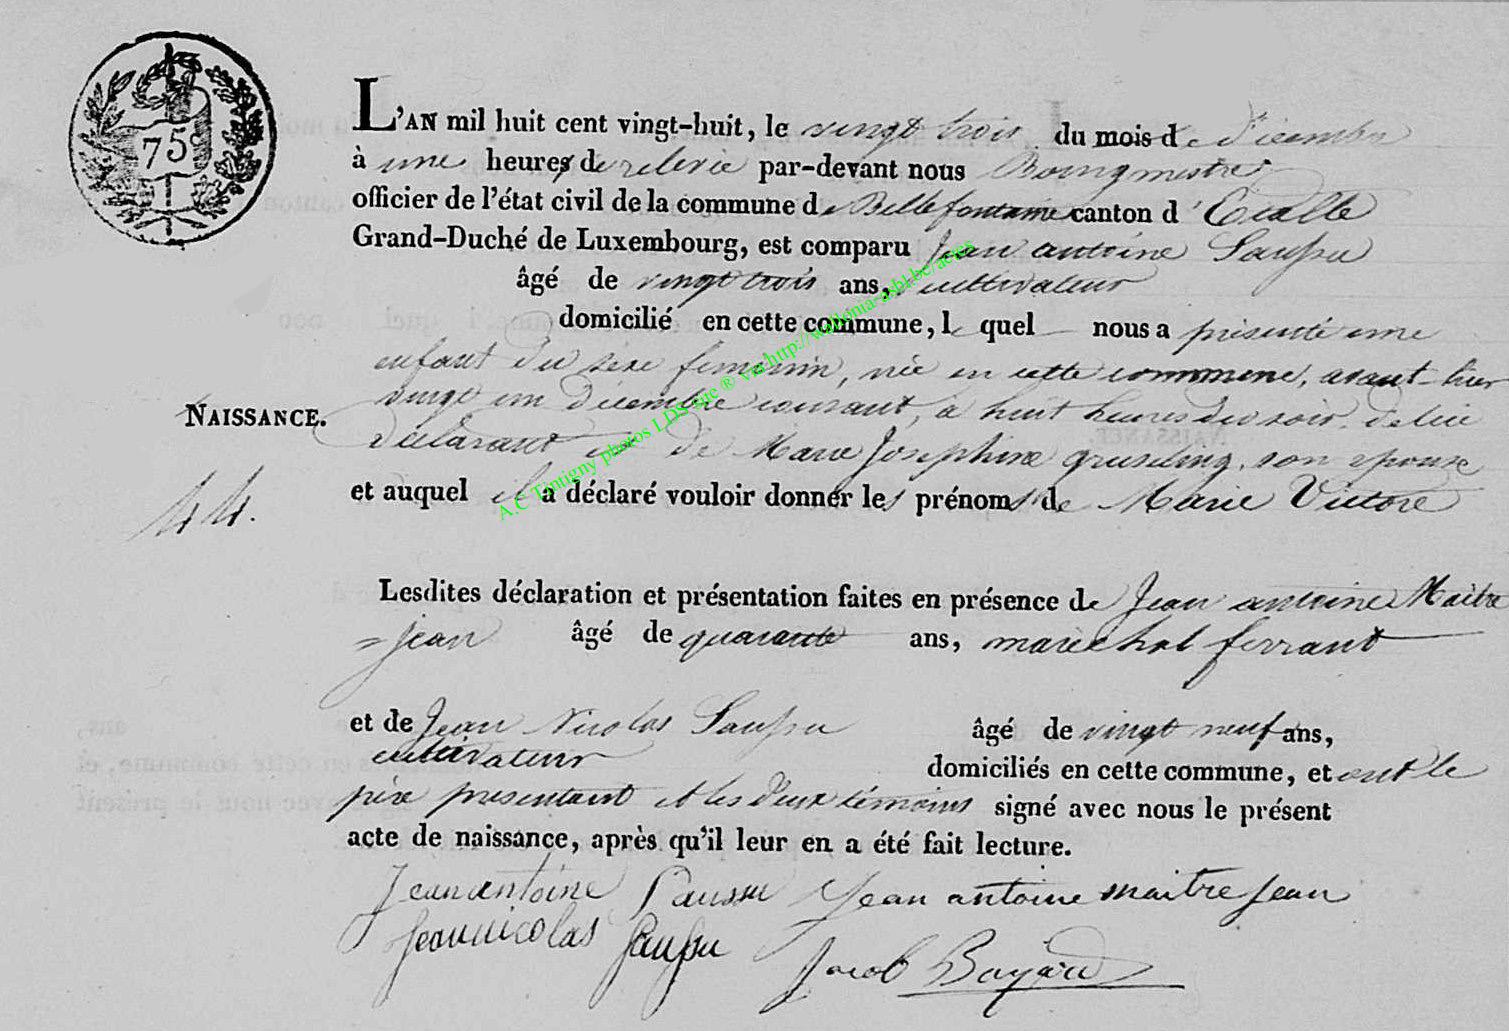 75c
L'AN mil huit cent vingt-huit, le vingt trois du mois de décembre
à une heures de relevée par-devant nous Bourgmestre
officier de l'état civil de la commune de Bellefontaine canton d'Etalle
Grand-Duché de Luxembourg, est comparu Jean antoine Saussu
âgé de vingt trois ans, cultivateur
domicilié en cette commune, le quel nous a présenté une
enfant du sexe feminin, née en cette commune, avant-hier
vingt un décembre courant, à huit heures du soir, de lui
NAISSANCE.
déclarant et de Marie Josephine son épouse
et auquel il a déclaré vouloir donner les prénoms de Marie Victore
44.
Lesdites déclaration et présentation faites en présence de Jean antoine Maitre
=jean âgé de quarante ans, maréchal ferrant
et de Jean Nicolas Saussu âgé de vingt neuf ans,
cultivateur domiciliés en cette commune, et ont le
père présentant et les deux témoins signé avec nous le présent
acte de naissance, après qu'il leur en a été fait lecture.
Jean antoine Saussu Jean antoine maitre jean
Jean nicolas Saussu
Jacob Bayard
A.C Tintigny photos LDS sue ® via http://wallonia-asbl.be/actes